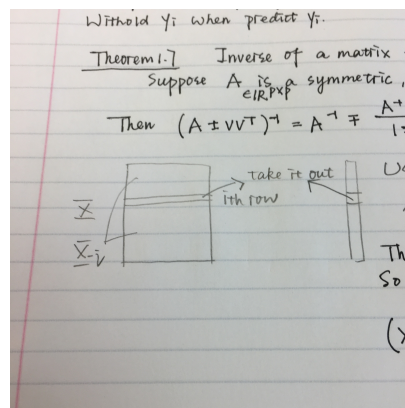 Withold yi when predict yi.
Theorem 1.7 Inverse of a matrix
Suppose A is a symmetric,
∈ℝp×p
Then (A ± VVᵀ)⁻¹ = A⁻¹ ∓ A⁻¹
1±
take it out
ith row
X
X-i
Th
So
(x